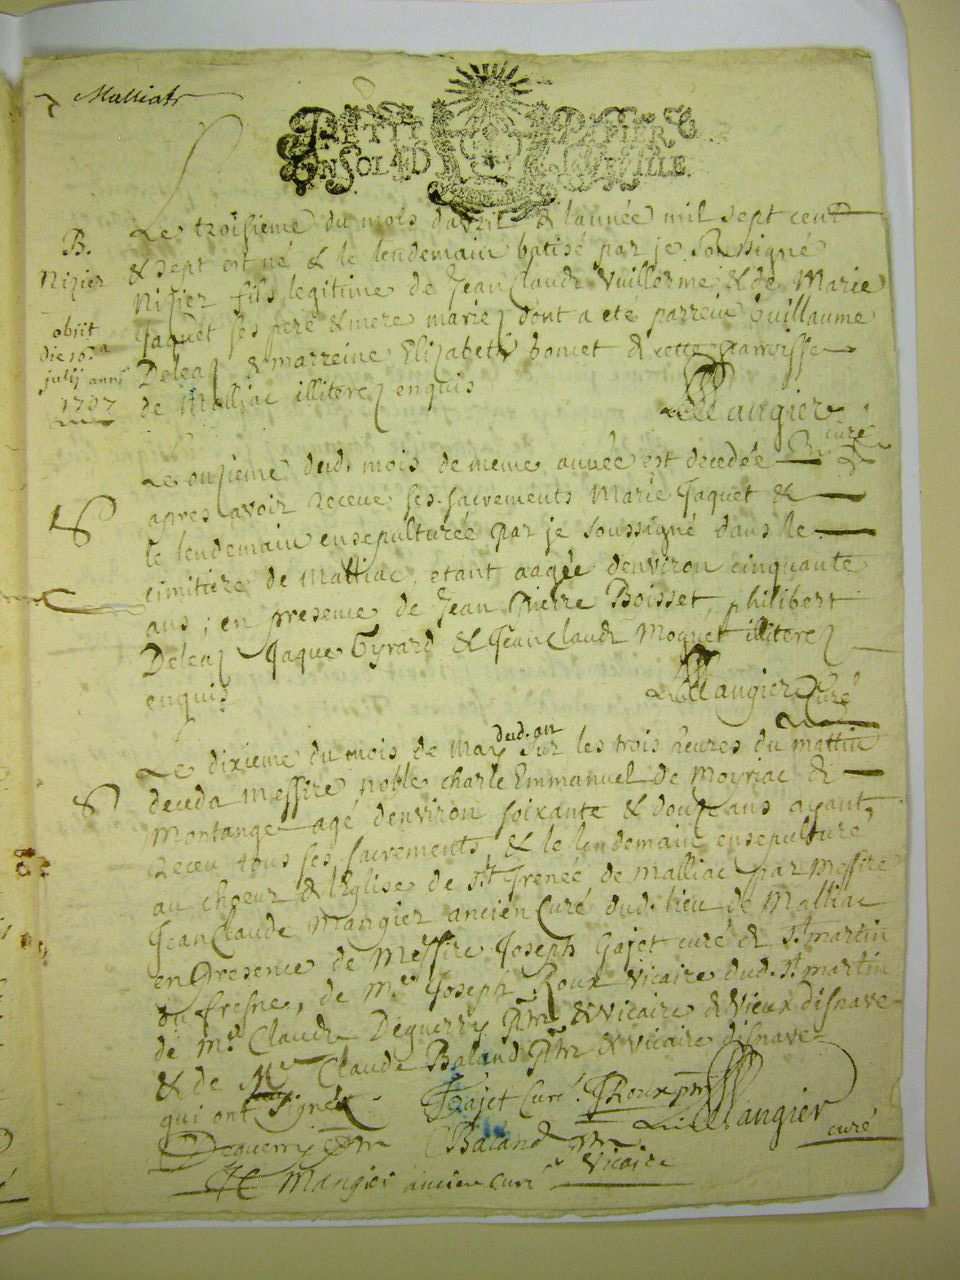 Malliat
PETIT PAPIER
UN SOL 4D LA FEUILLE.
B.
Nizier
obiit
die 10a
julij anni
1707
Le troisieme du mois d'avril & l'année mil sept cent
& sept est né & le lendemain batisé par je soussigné
Nisier fils legitime de Jean Claude Vuillerme & de Marie
Jaquet ses pere & mere mariez dont a eté parrein Guillaume
Deleaz & marreine Elizabeth bonet de cette parroisse
de Malliac illiterez enquis
Mangier
curé
S
Le onzieme dud. mois de meme année est decedée
apres avoir receue ses sacrements Marie Jaquet &
le lendemain ensepulturée par je soussigné dans le
cimitiere de Malliac, etant aagée d'environ cinquante
ans; en presence de Jean Pierre Boisset, philibert
Deleaz Jaque Tyrard & Jean Claude Moquet illiterez
enquis
Mangier Curé
S
Le dixieme du mois de may dud. an sur les trois heures du mattin
deceda Messire noble charle Emmanuel de Moyriac &
Montange agé d'environ soixante & douze ans ayant
receu tous ses sacrements, & le lendemain ensepulturé
au choeur de l'Eglise de St Irenée de Malliac par Messire
Jean Claude Mangier ancien Curé dud. lieu de Malliac
en presence de Messire Joseph Gajet curé de St martin
du fresne, de mre Joseph Roux Vicaire dud. St martin
de mre Claude Deguerry ptre & Vicaire de Vieux disnave
& de Mre Claude Baland ptre & Vicaire disnave
qui ont signéz
Gajet Curé. JRoux ptre
Mangier
curé
Deguerry ptre Baland ptre
Vicaire
JC Mangier ancien curé